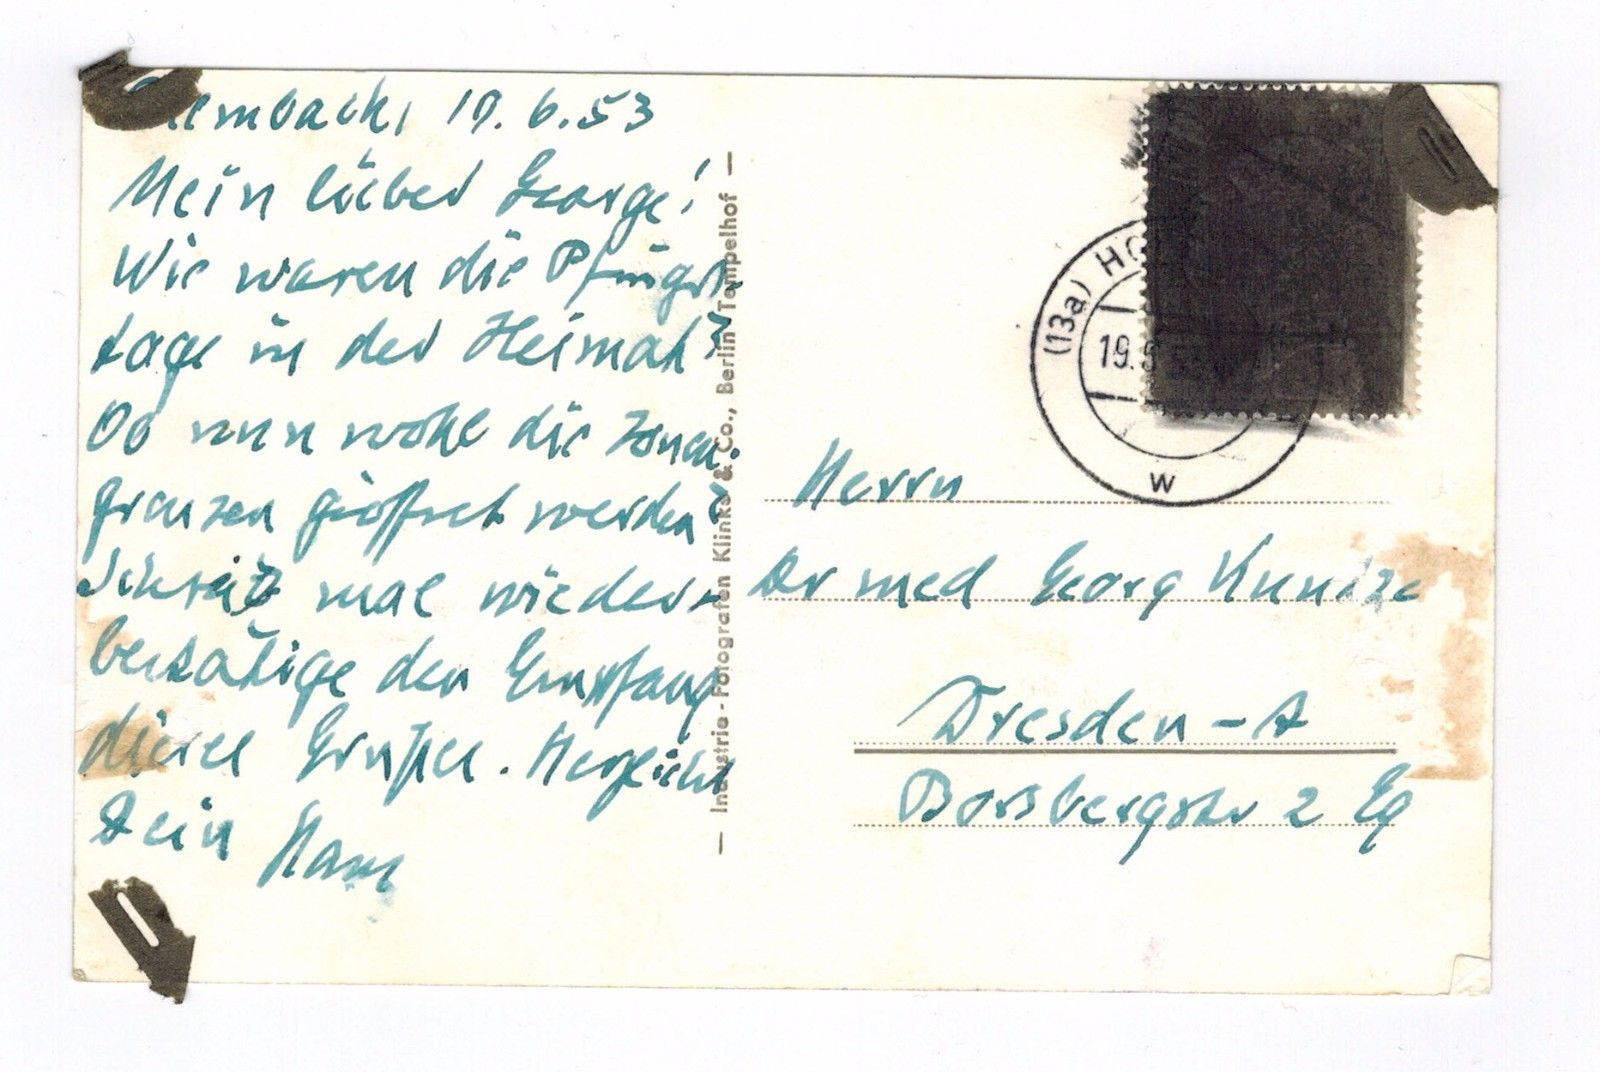 19.6.53
Mein lieber George!
Wie waren die Pfingst
tage in der Heimat?
Ob nun wohl die Zonen-
grenzen geöffnet werden?
Schreib mal wieder u
bestätige den Empfang
dieser Grüße. Herzlichst
Dein Hans
— Industrie - Fotografen Klinke & Co., Berlin-Tempelhof —
(13a) HO
19.6.5
W
Herrn
Dr med Georg Kuntze
Dresden-A
Borsbergstr 2 Eg